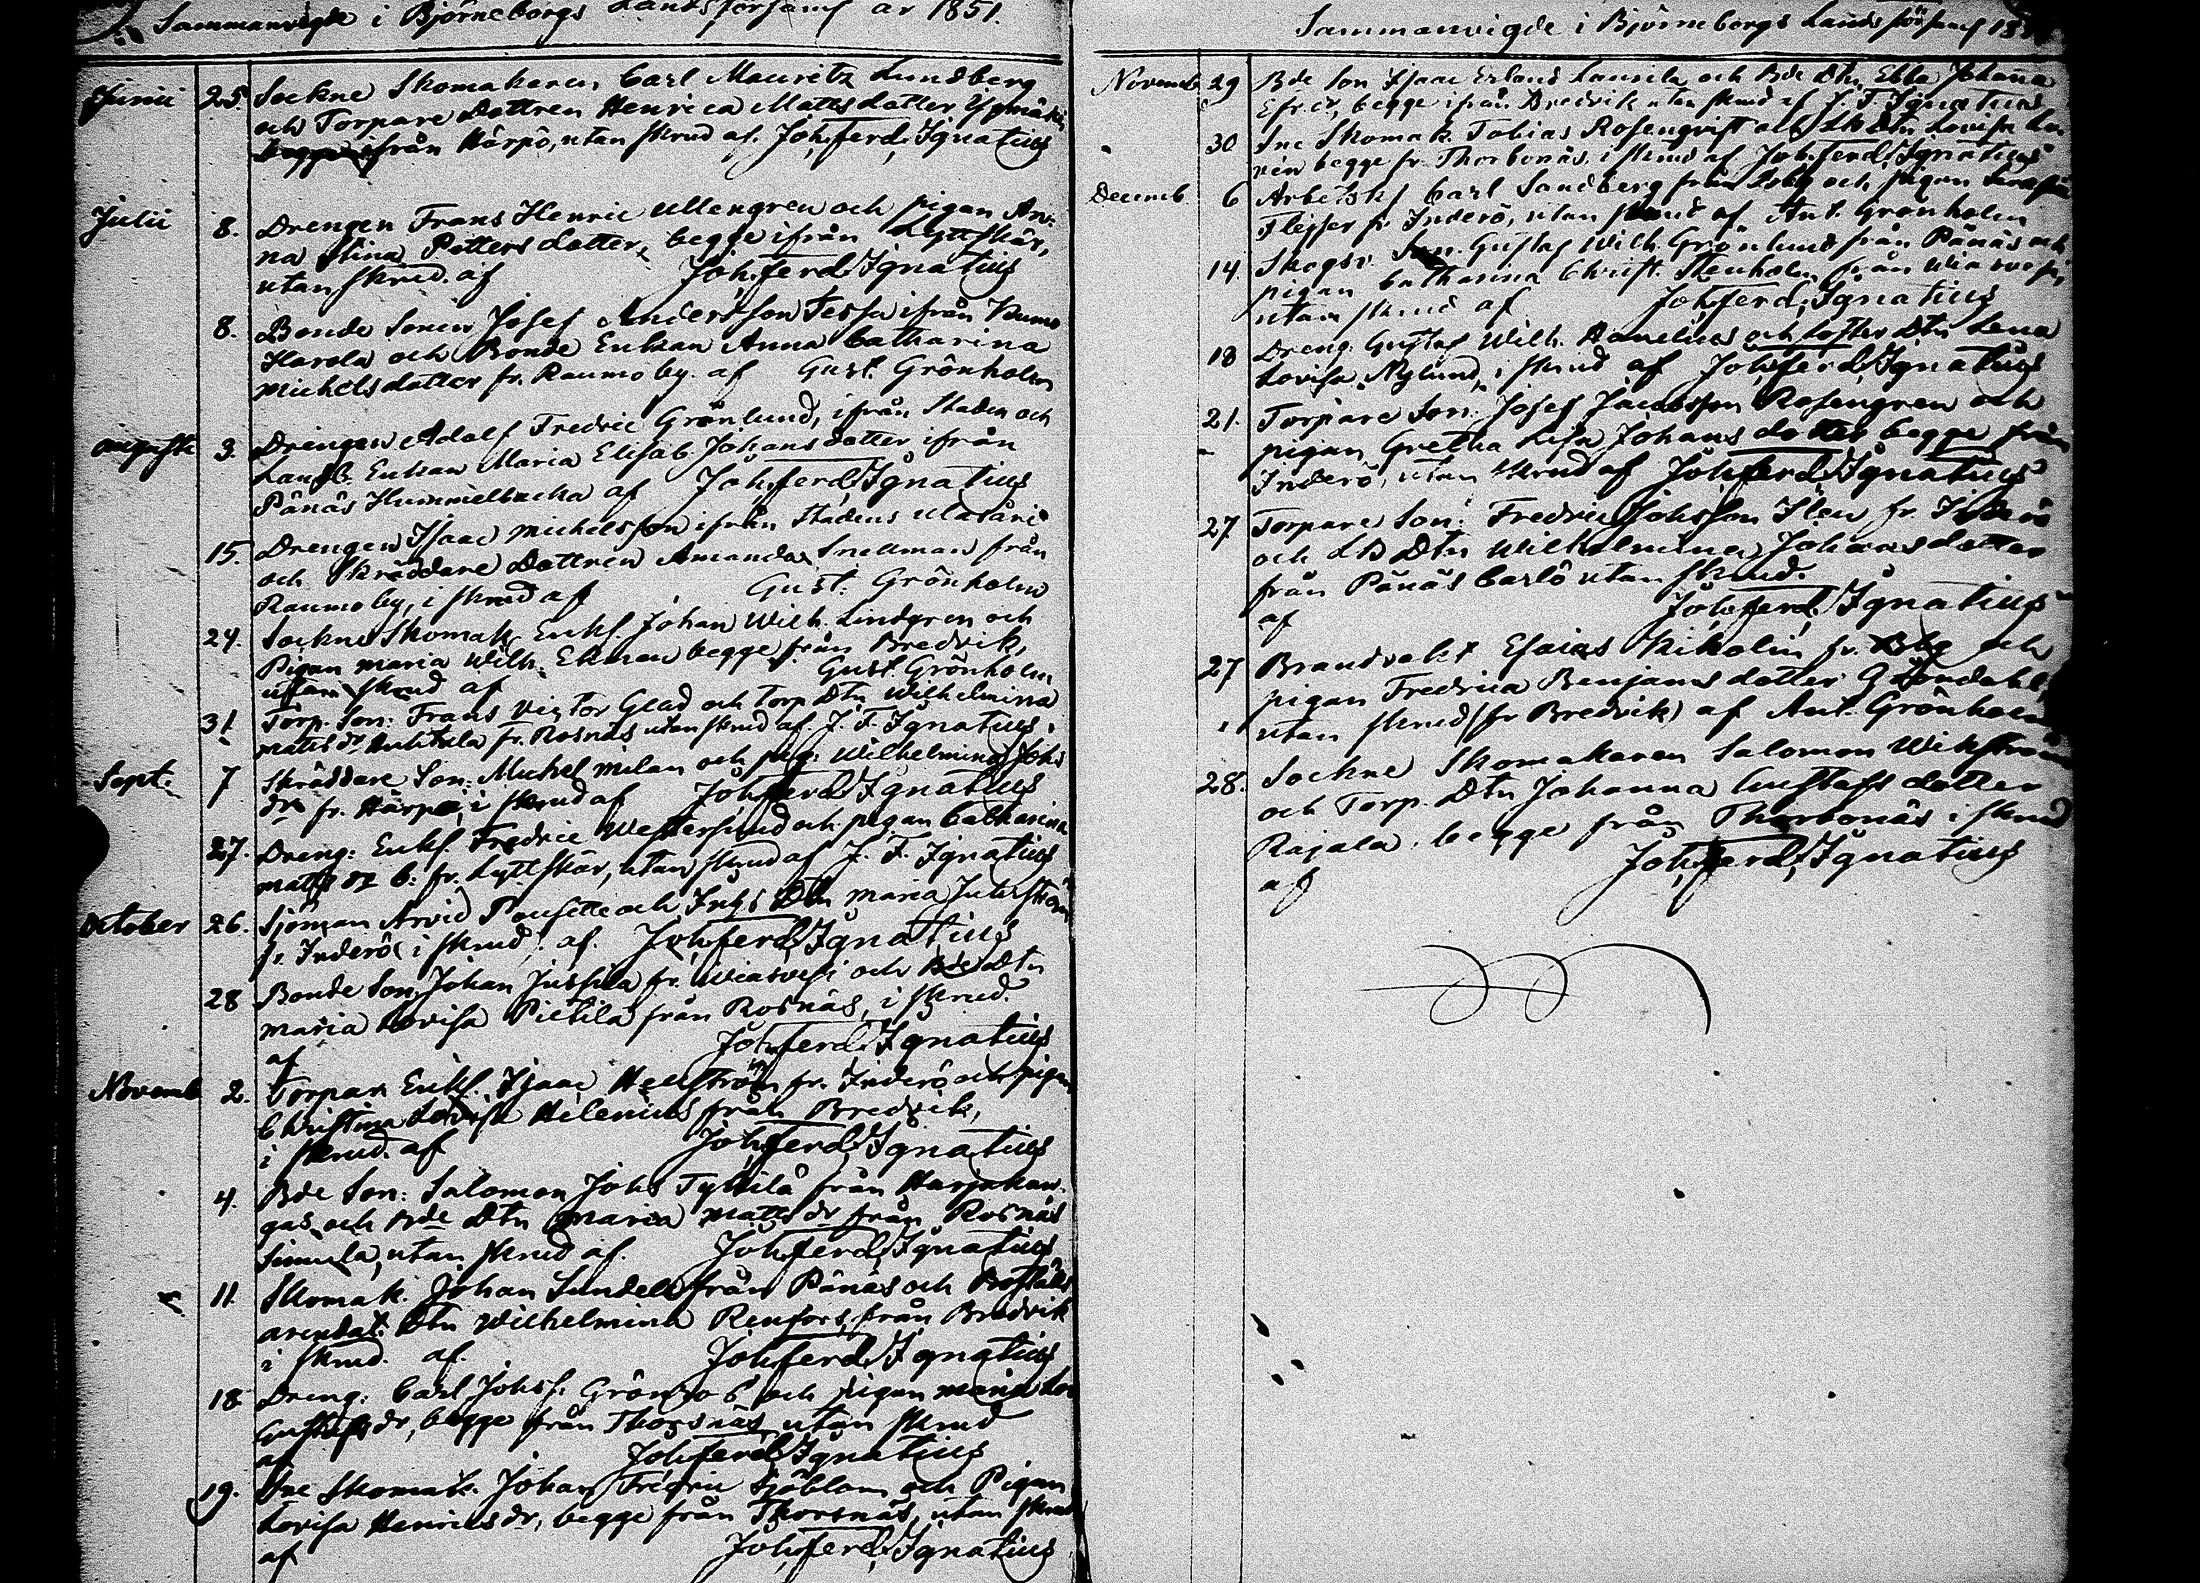 Sammanvigde i Björneborgs Landsförsaml år 1851.
Junii 25. Sockne Skomakaren Carl Mauritz Lundberg
och Torpare Dottren Henrica Matts dotter
begge ifrån Härpö, utan skrud af. Joh. Ferd. Ignatius
Julii 8. Drengen Frans Henric Ullengren och pigan An-
na Stina Petters dotter, begge ifrån Lyttskär,
utan skrud. af Joh. Ferd. Ignatius
8. Bonde Sonen Josef Andersson Tessa ifrån Kumo
Harola och Bonde Enkan Anna Catharina
Michelsdotter fr. Raumo by. af Gust. Grönholm
Augusti 3. Drengen Adolf Fredric Grönlund, ifrån Staden och
Landb. Enkan Maria Elisab. Johans dotter ifrån
Pänäs Hummelbacka af Joh. Ferd. Ignatius
15. Drengen Isaac Michelsson ifrån Stadens Ulasöri
och Skräddare Dottren Amanda Snellman från
Raumo by, i skrud af Gust. Grönholm
24. Sockne Skomak. Enkl. Johan Wilh. Lindgren och
Pigan Maria Wilh. Ekman begge från Bredvik,
utan skrud af Gust. Grönholm
31. Torp. Son: Frans Victor Glad och Torp Dtn Wilhelmina
Matts dr Anttila fr. Rosnäs utan skrud af. J. F. Ignatius.
Sept: 7 Skräddare Son: Michel Milan och pig: Wilhelmina Johs
dr fr. Härpö, i skrud af Joh. Ferd. Ignatius
27. Dreng: Enkl. Fredric Westerlund och pigan Catharina
Matts dr b: fr. Lyttskär, utan skrud af J. F. Ignatius
October 26. Sjöman Arvid Tousette och Inhs Dtn Maria
fr. Inderö i skrud. af. Joh. Ferd. Ignatius
28 Bonde Son Johan Jussila fr. Wiasvesi och Bde Dtn
Maria Lovisa Pietilä från Rosnäs, i skrud.
af Joh. Ferd. Ignatius
Novemb 2. Torpar. Enkl. Isaac Hellström fr. Inderö och pigan
Christina Lovisa Helenius från Bredvik,
i skrud. af Joh. Ferd. Ignatius
4. Bde Son: Salomon Johs Tyklilä från Harjakan-
gas och Bde Dtn Maria Matts dr från Rosnäs
Simula, utan skrud af. Joh. Ferd. Ignatius
11. Skomak. Johan Sundell från Pänäs och Boställs
arendat. Dtn Wilhelmina Renfors, från Bredvik
i skrud. af. Joh. Ferd. Ignatius
18. Dreng: Carl Johss. Grönroos och pigan Maria Lov
Gustafs dr, begge från Thorsnäs, utan skrud
af Joh. Ferd. Ignatius
19. Sne Skomak. Johan Fredric Sjöblom och Pigan
Lovisa Henrics dr, begge från Thorsnäs, utan skrud
af Joh. Ferd. Ignatius
Sammanvigde i Björneborgs Landsförsaml
Novemb 29 Bde Son Isaac Erland Laurila och Bde Dtn Ebba Johanna
Efr. dr, begge ifrån Bredvik utan skrud af J. F. Ignatius
30 Sne Skomak. Tobias Rosenqvist och Dtn Lovisa
begge fr. Thorbonäs. i skrud af Joh. Ferd. Ignatius
Decemb 6 Arbetsk. Carl Sandberg från och pigan
fr Inderö, utan skrud af Ant. Grönholm
14. Skogsv. Gustaf Wilh. Grönlund från Pänäs och
pigan Catharina Christ. Stenholm från Wiasvesi,
utan skrud af Joh. Ferd. Ignatius
18 Dreng. Gustaf Wilh. och Dtn Lena
Lovisa Nylund, i skrud af Joh. Ferd. Ignatius
21. Torpare Son: Josef Jacobsson Rosengren och
pigan Gretha Lisa Johans dotter begge från
Inderö, utan skrud af Joh. Ferd. Ignatius
27 Torpare Son: Fredric Johsson Ilen fr. Inderö
och LB Dtn Wilhelmina Johans dotter
från Pänäs Carlö utan skrud.
af Joh. Ferd. Ignatius
27 Brandvakt Esaias Kikolin fr. Bbg och
pigan Fredrica Benjams dotter Gröndahl,
utan skrud (fr Bredvik) af Ant. Grönholm
28. Sockne Skomakaren Salomon Wikström
och Torp. Dtn Johanna Gustafs dotter
Rajala, begge från Thorbonäs i skrud
af Joh. Ferd. Ignatius